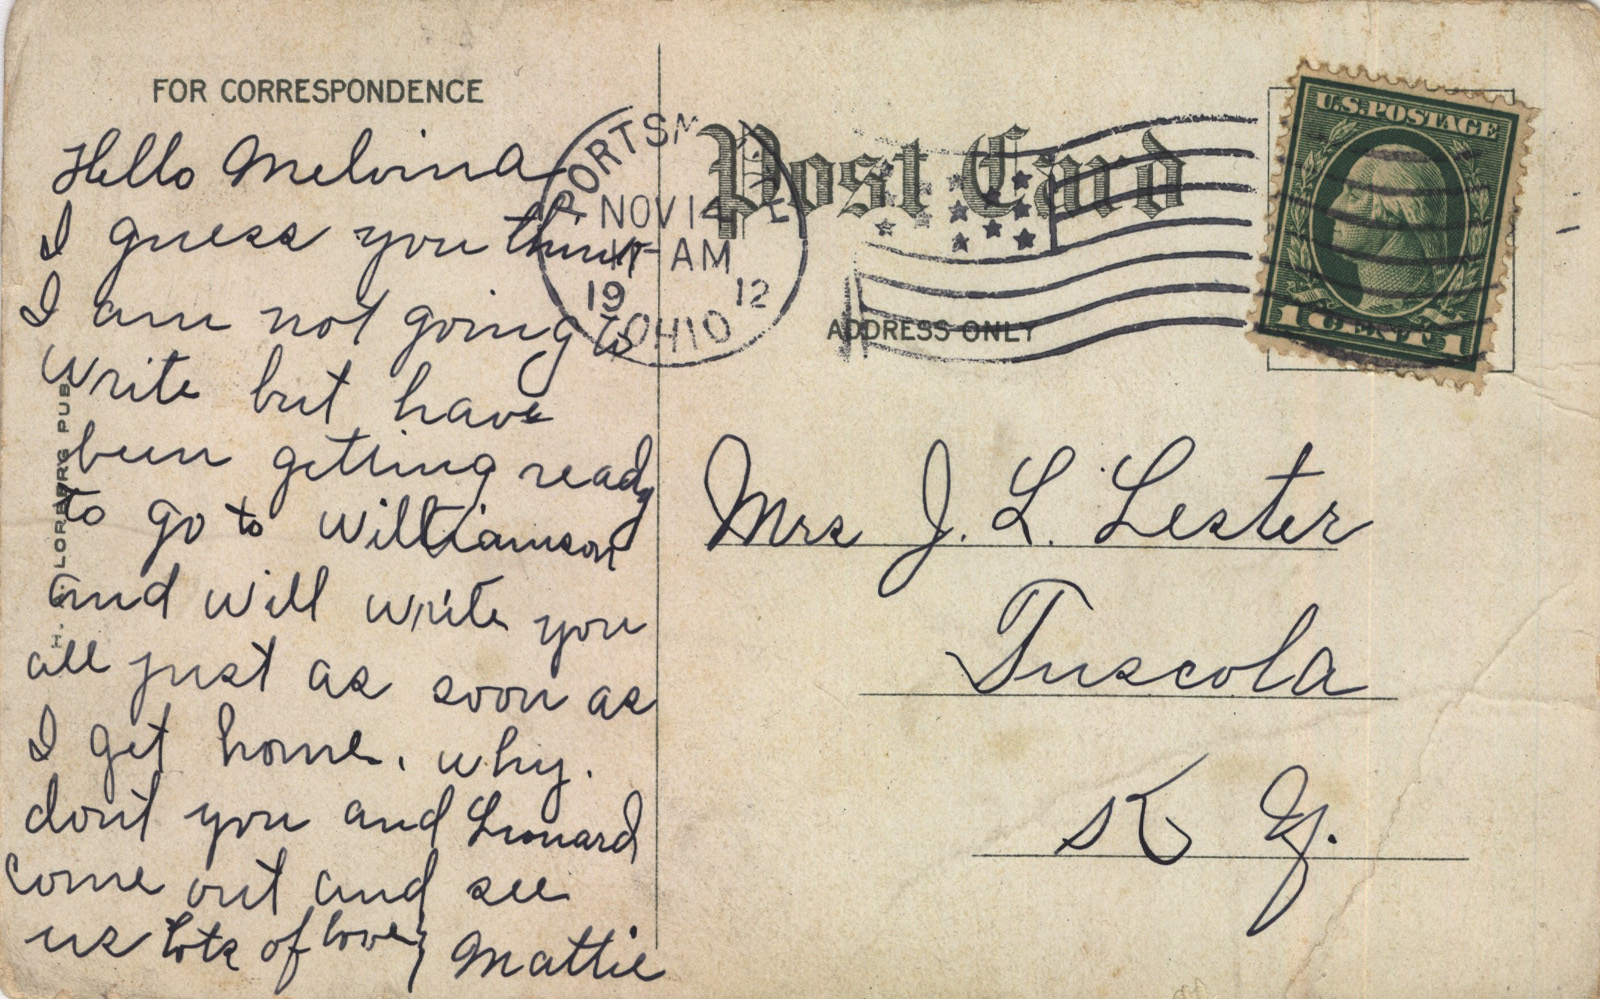 FOR CORRESPONDENCE
Hello Melvina
I guess you think
I am not going to
write but have
been getting ready
to go to Williamson
and will write you
all just as soon as
I get home. why.
don't you and Leonard
come out and see
us lots of love
Mattie
H. LORBERG PUB
PORTSM
NOV 14
AM
19 12
OHIO
Post Card
ADDRESS ONLY
U.S. POSTAGE
1 CENT 1
Mrs J. L. Lester
Tuscola
Ky.